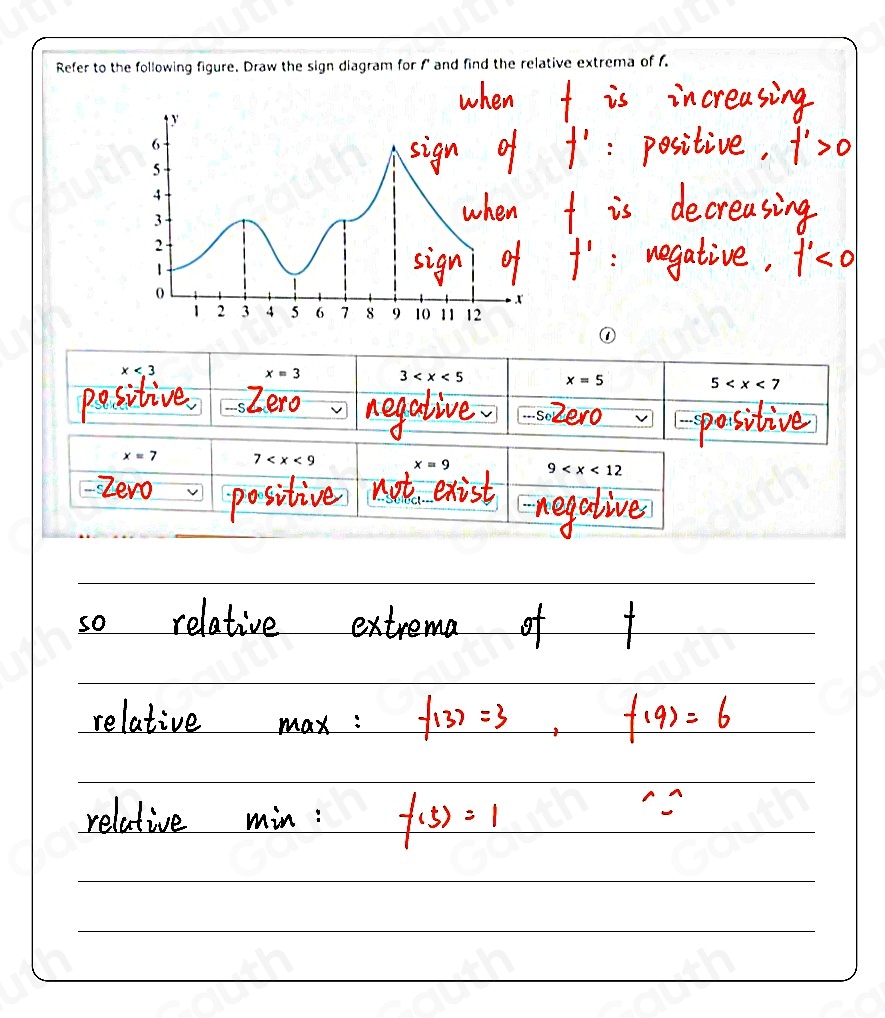 Refer to the following figure. Draw the sign diagram for f' and find the relative extrema of f.
when f is increasing
sign of f' : positive, f'>0
when f is decreasing
sign of f' : negative, f'<0
y
6
5
4
3
2
1
0
1 2 3 4 5 6 7 8 9 10 11 12
x
x < 3
x = 3
3 < x < 5
x = 5
5 < x < 7
positive
Zero
negative
Zero
positive
x = 7
7 < x < 9
x = 9
9 < x < 12
Zero
positive
not exist
negative
so relative extrema of f
relative max : f(3) = 3 , f(9) = 6
relative min : f(5) = 1
Gauth